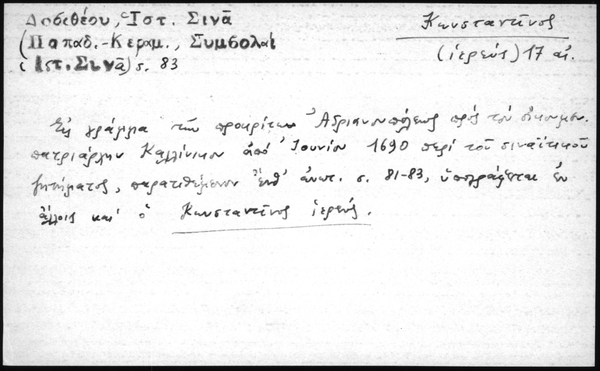 Δοσιθέου, Ἱστ. Σινᾶ
(Παπαδ.-Κεραμ., Συμβολαὶ
(Ἱστ. Σινᾶ) σ. 83
Κωνσταντῖνος
(ἱερεύς) 17 αἰ.
Εἰς γράμμα τῶν προκρίτων Ἀδριανουπόλεως πρὸς τὸν οἰκουμεν.
πατριάρχην Καλλίνικον ἀπὸ Ἰουνίου 1690 περὶ τοῦ σιναϊτικοῦ
ζητήματος, παρατιθέμενον ἔνθ' ἀνωτ. σ. 81-83, ὑπογράφεται ἐν
ἄλλοις καὶ ὁ Κωνσταντῖνος ἱερεύς.